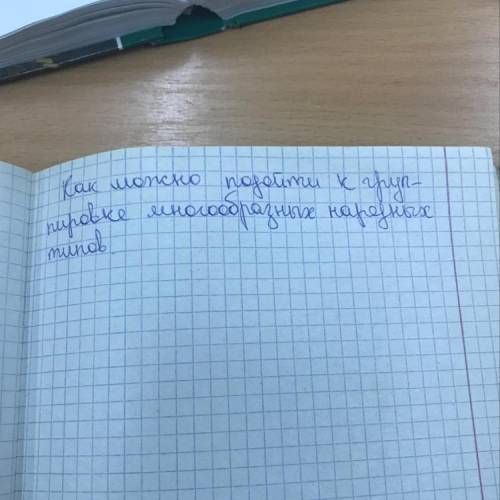 Как можно подойти к груп-
пировке многообразных народных
типов